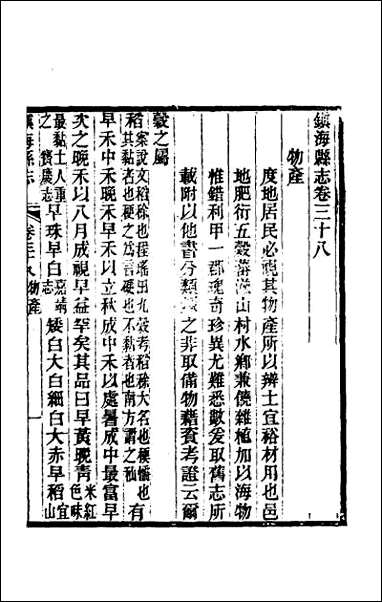 鎮海縣志卷三十八
物產
度地居民必視其物產所以辨土宜裕材用也邑
地肥衍五穀蕃茂山村水鄉兼饒雜植加以海物
惟錯利甲一郡瓌奇珍異尤難悉數爰取舊志所
載附以他書分類之非取備物藉資考證云爾
穀之屬
稻案說文稻稌也程瑤田九穀考稻稌大名也稉穤也有
其黏者也稉之為言硬也不黏者也南方謂之秈
早禾中禾晚禾早禾以立秋成中禾以處暑成中最富早
次之晚禾以八月成視早益罕矣其品曰早黃晚青米紅
色味
最黏土人重
之 寶慶志早珠早白嘉靖
志矮白大白細白大赤早稻宜
山
鎮海縣志
卷三十八 物產
一